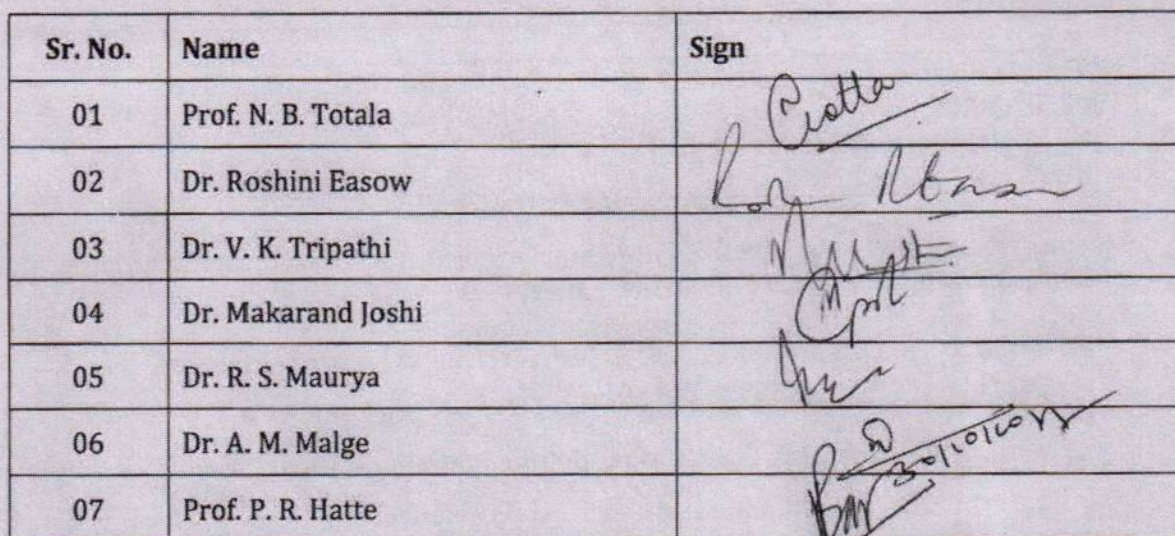 Sr. No. Name Sign
01 Prof. N. B. Totala
02 Dr. Roshini Easow
03 Dr. V. K. Tripathi
04 Dr. Makarand Joshi
05 Dr. R. S. Maurya
06 Dr. A. M. Malge
07 Prof. P. R. Hatte